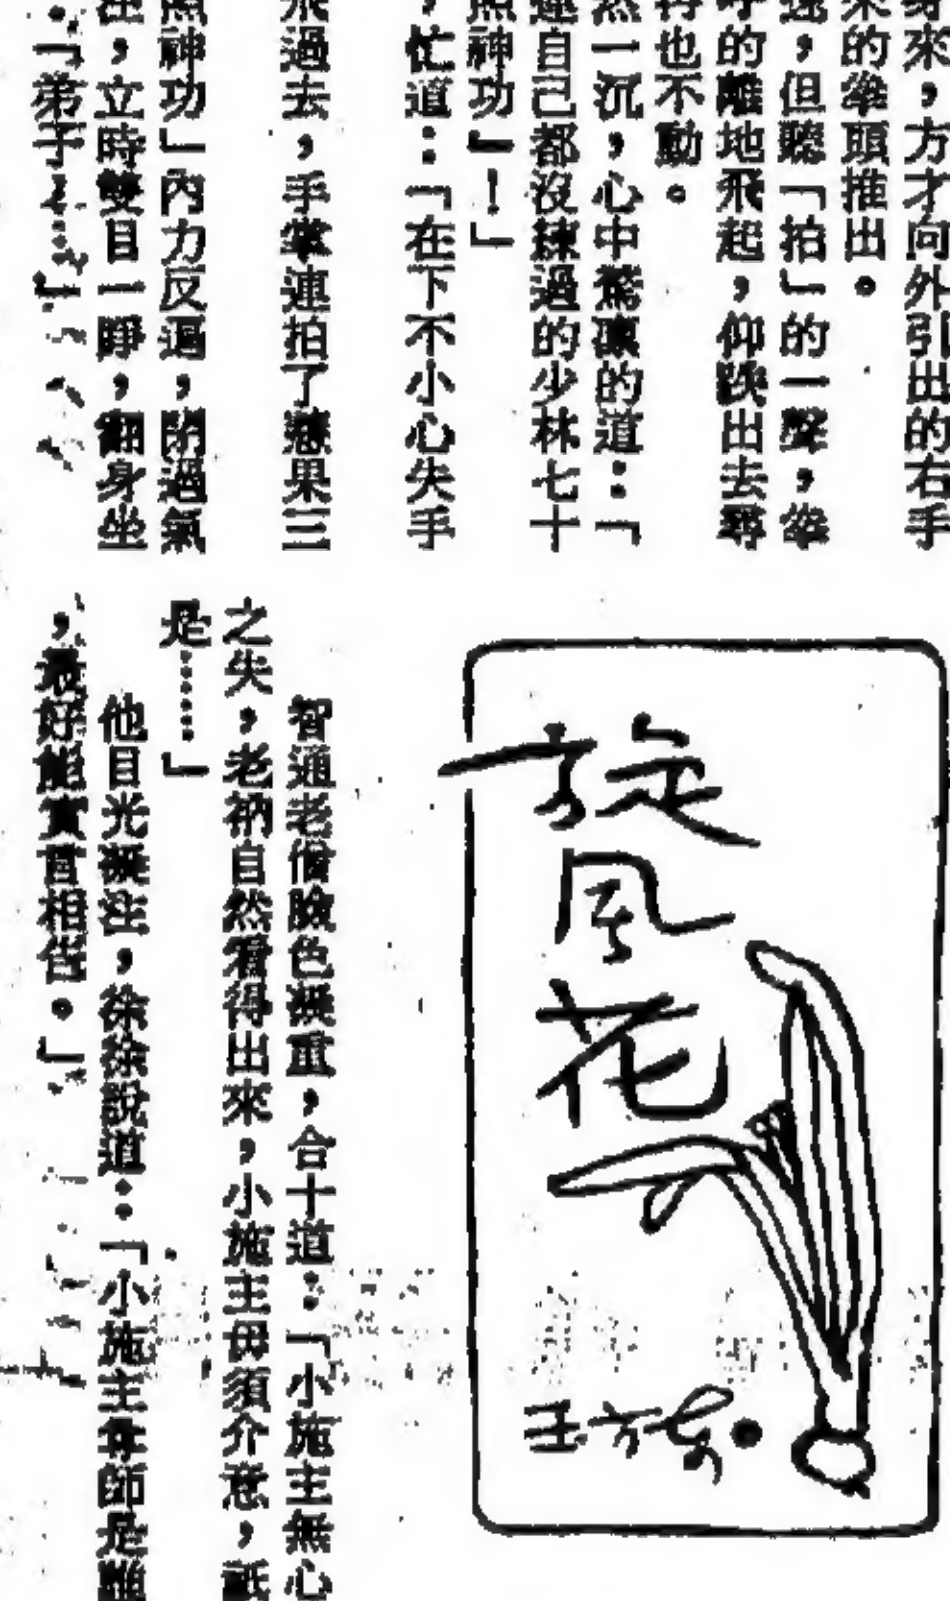 身來，方才向外引出的右手
來的拳頭推出。
速，但聽「拍」的一聲，拳
呼的離地飛起，仰跌出去尋
再也不動。
然一沉，心中驚凜的道：「
連自己都沒練過的少林七十
照神功』！」
，忙道：「在下不小心失手
飛過去，手掌連拍了慧果三
照神功」內力反逼，閉過氣
注，立時雙目一睜，翻身坐
：「弟子……」
旋風花
王方
智通老僧臉色凝重，合十道：「小施主無心
之失，老衲自然看得出來，小施主毋須介意，祇
是……」
他目光凝注，徐徐說道：「小施主尊師是誰
，最好能實言相告。」